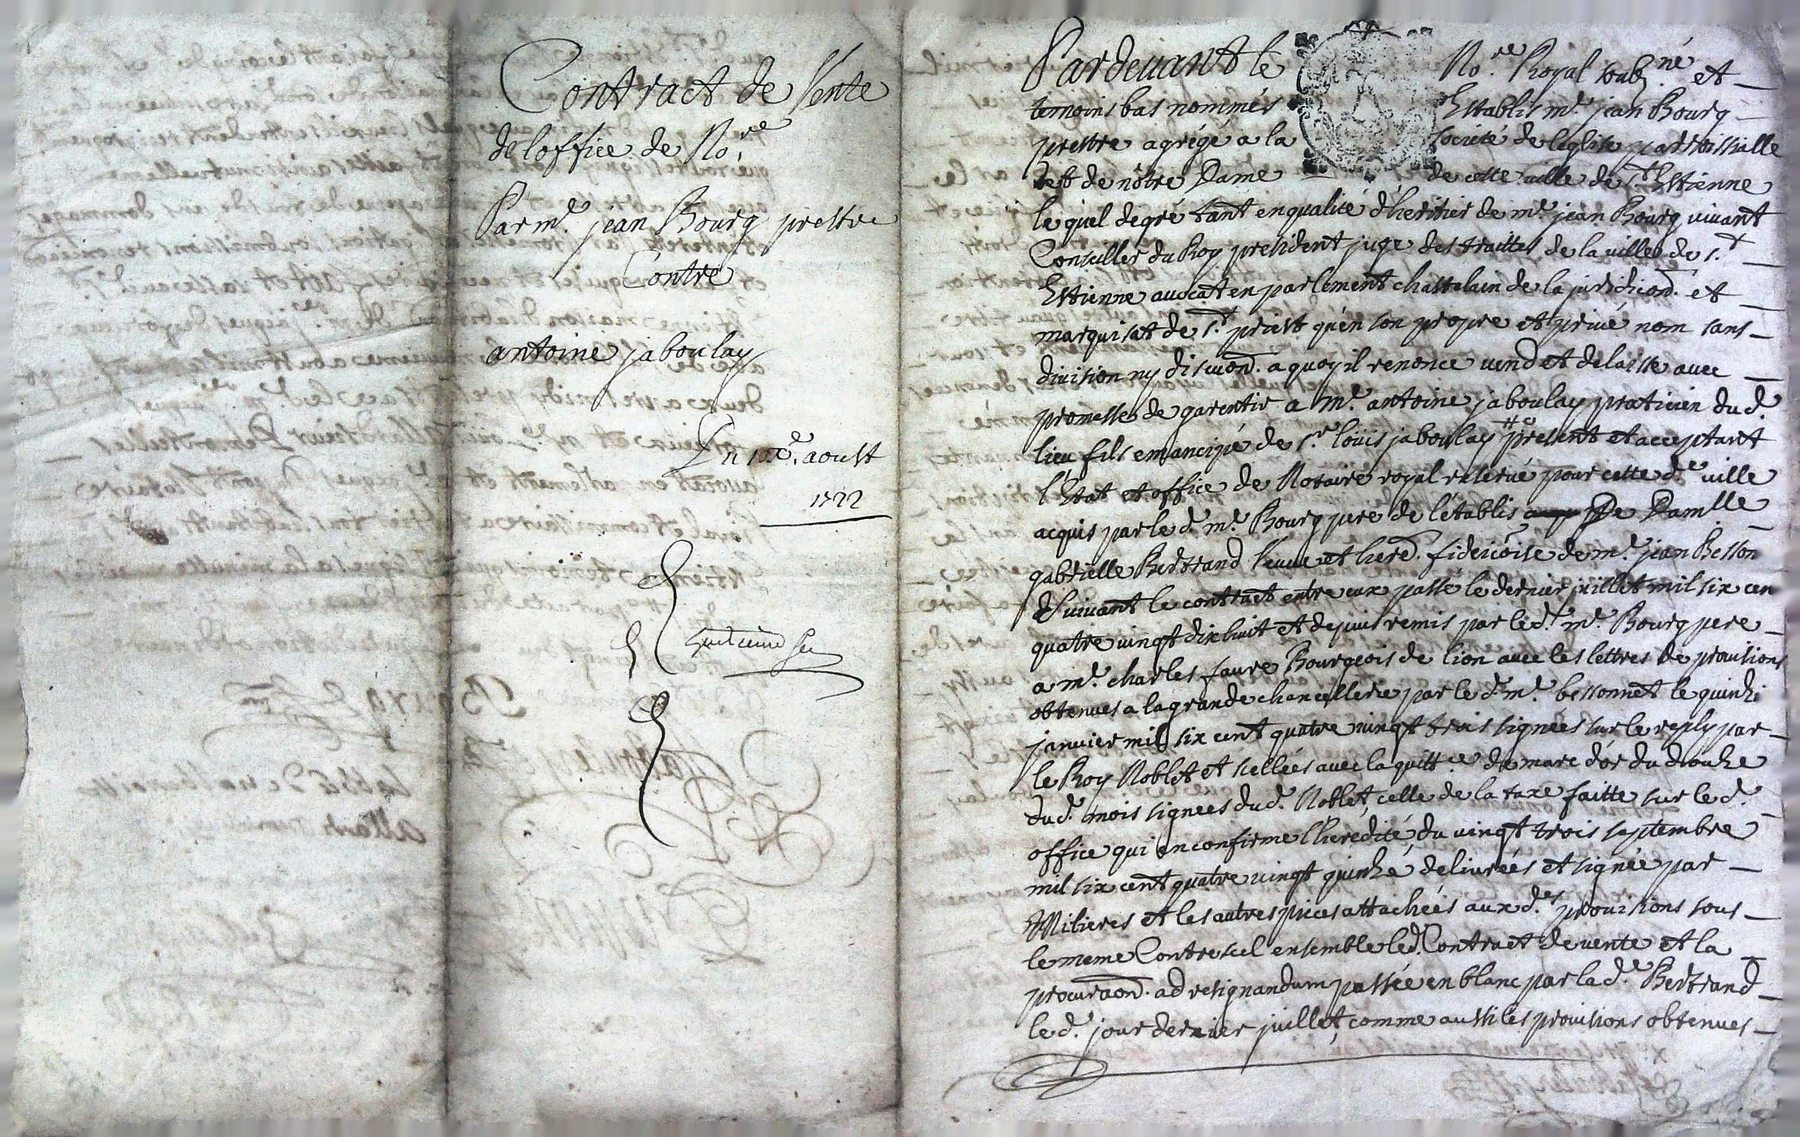 Contract de Vente
de loffice de No.re
Par m.e jean Bourg prestre
Contre
antoine jaboulay
Du 10e. aoust
1722
Pardevant le No.re Royal soub.né et
temoins bas nommés Establis m.e jean Bourg
prestre agrégé a la societé de leglise parroissialle
de nôtre Dame de cette ville de S.t Estienne
le quel de gré tant en qualité d'heritier de m.e jean Bourg vivant
Conseiller du Roy president juge des traittes de la ville de S.t
Estienne avocat en parlement chastelain de la juridicon. et
marquisat de S.t priest qu'en son propre et privé nom sans
division ny discuon. a quoy il renonce vend et delaisse avec
promesse de garentir a m.e antoine jaboulay praticien du d.
lieu fils emancipé de S.r loüis jaboulay present et acceptant
l'Etat et office de Notaire royal reservé pour cette d.e ville
acquis par le d. m.e Bourg pere de l'etablis De Damlle
gabrielle Bertrand veuve et hered. fideicõise de m.e jean Besson
suivant le contract entre eux passé le dernier juillet mil six cen
quatre vingt dix huit et depuis remis par le d. m.e Bourg pere
a m.e charles faure Bourgeois de lion avec les lettres de provisions
obtenues a la grande chancellerie par le d. m.e bessonnet le quinze
janvier mil six cent quatre vingt trois signées sur le reply par
le Roy Noblet et sellées avec la quitt.ce du marc d'or du douze
du d. mois signées du d. Noblet, celle de la taxe faitte sur le d.
office qui en confirme l'heredité, du vingt trois septembre
mil six cent quatre vingt quinze, delivrées et signée par
Milieres et les autres pieces attachées aux d.es provisions sous
le meme Contrescel ensemble led. Contract de vente et la
procuraon. ad resignandum passée en blanc par la d.e Bertrand
le d. jour dernier juillet, comme aussi les provisions obtenues